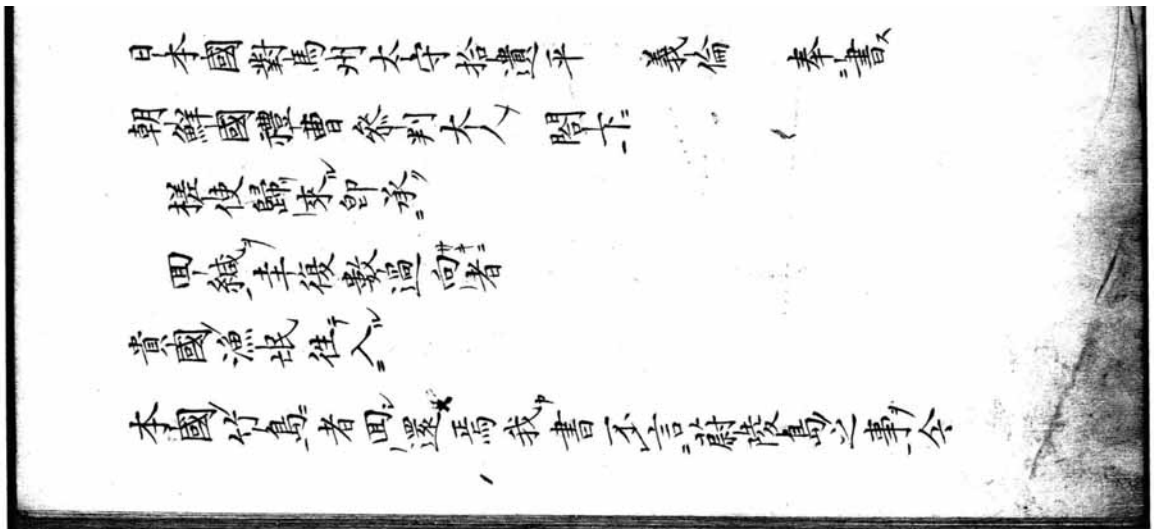 日本國對馬州太守拾遺平 義倫 奉書
朝鮮國禮曹參判大人 閤下
槎使歸來即承
回緘圭復數過向者
貴國漁氓往入
本國竹島者回還焉我書不言蔚陵島之事今